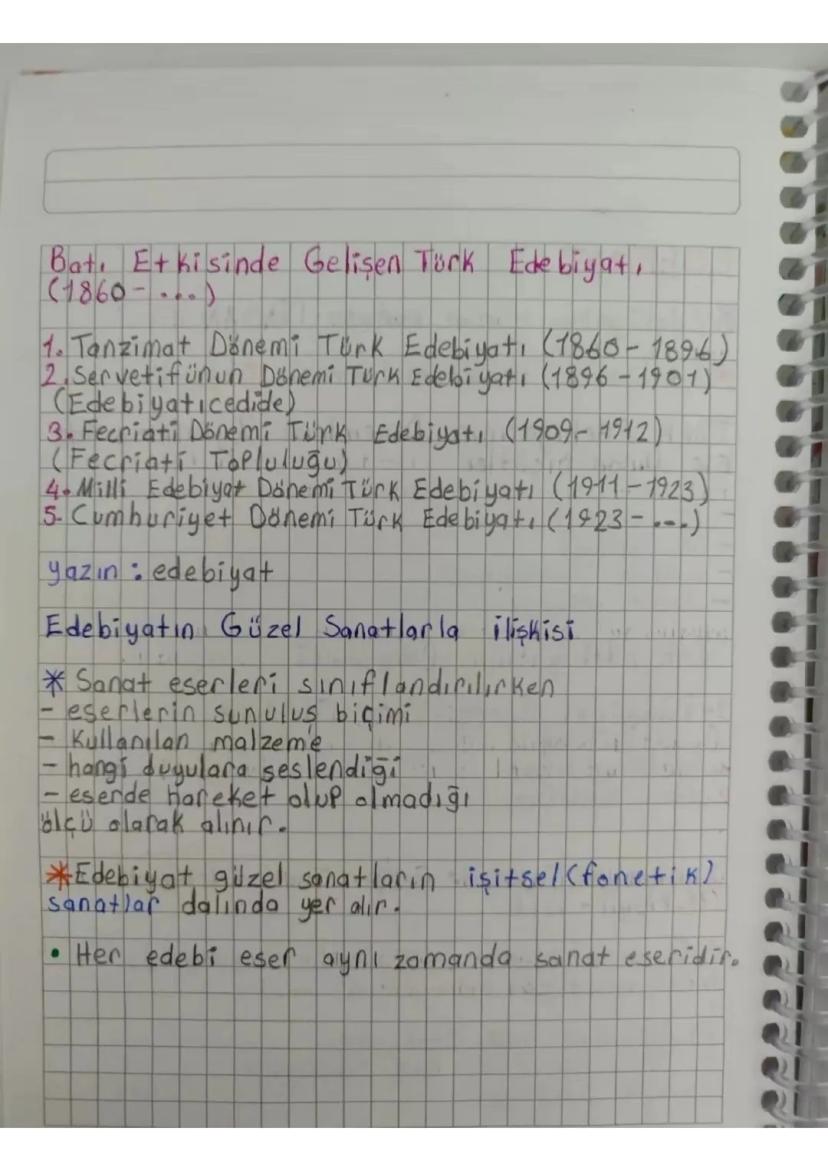 Batı Etkisinde Gelişen Türk Edebiyatı
(1860-...)
1. Tanzimat Dönemi Türk Edebiyatı (1860-1896)
2. Servetifünun Dönemi Türk Edebiyatı (1896-1901)
(Edebiyatıcedide)
3. Fecriati Dönemi Türk Edebiyatı (1909-1912)
(Fecriati Topluluğu)
4. Milli Edebiyat Dönemi Türk Edebiyatı (1911-1923)
5- Cumhuriyet Dönemi Türk Edebiyatı (1923-...)
yazın : edebiyat
Edebiyatın Güzel Sanatlarla ilişkisi
* Sanat eserleri sınıflandırılırken
- eserlerin sunuluş biçimi
- Kullanılan malzeme
- hangi duyulara seslendiği
- eserde hareket olup olmadığı
ölçü olarak alınır.
* Edebiyat güzel sanatların işitsel (fonetik)
sanatlar dalında yer alır.
• Her edebi eser aynı zamanda sanat eseridir.